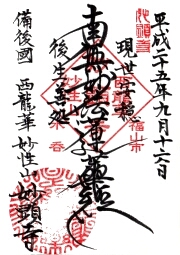 平成二十五年九月十六日
現世安穏
南無妙法蓮華経
後生善処
備後國 西龍華 妙性山 妙頭寺
福山市